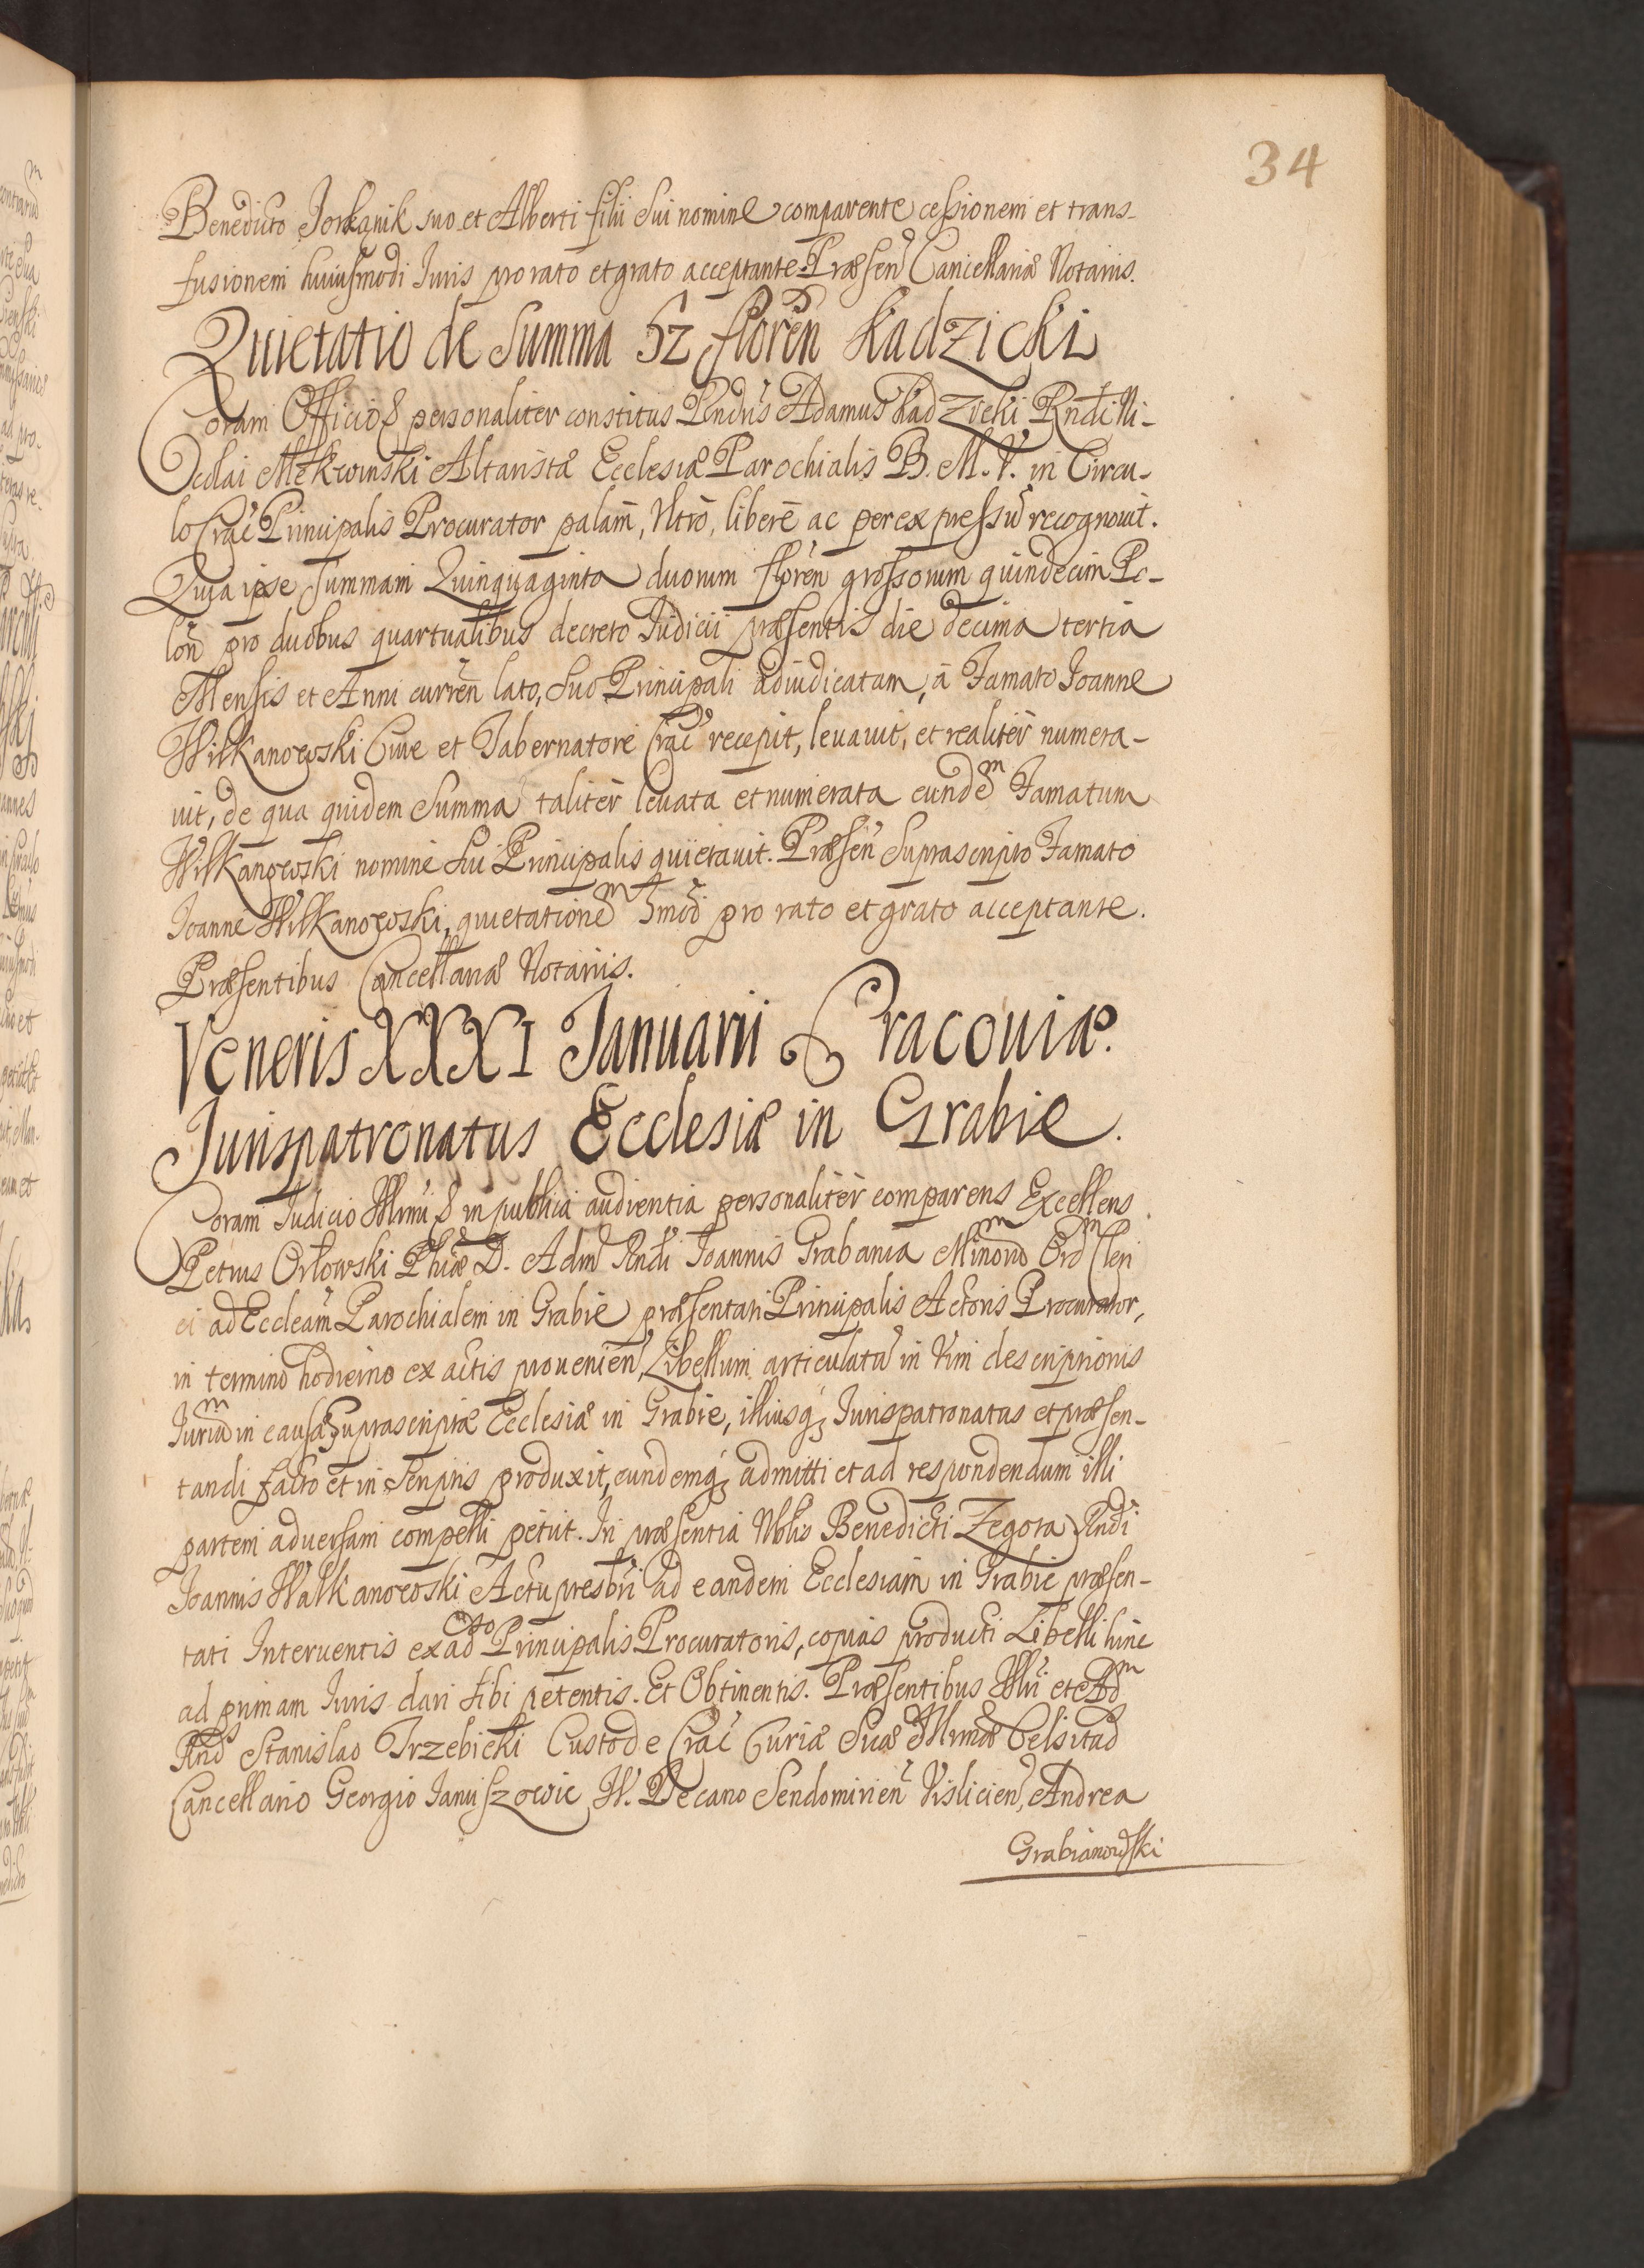 34
Benedicto Jorkąnik suo et Alberti filii sui nomine comparente cessionem et trans-
fusionem huiusmodi Iuris pro rato et grato acceptante. Præsen̄ Cancellariæ Notariis.
Quietatio de Summa 52 floren̄ Kadzicki
Coram Officio & personaliter constitus Rndus Adamus Kadzicki Rndi Ni-
colai Mękwinski Altaristæ Ecclesiæ Parochialis B. M. V. in Circu-
lo Crac̄ Principalis Procurator palam, Vltro, libere ac per expressū recognouit.
Quia ipse summam Quinquaginta duorum floren̄ grossorum quindecim Po-
lon̄ pro duobus quartualibus decreto Iudicii præsentis die decima tertia
Mensis et Anni curren̄ lato, suo Principali adiudicatam, à Famato Ioanne
Wilkanowski Ciue et Tabernatore Crac̄ recepit, leuauit, et realiter numera-
uit, de qua quidem Summa taliter leuata et numerata eundem Famatum
Wilkanowski nomine sui Principalis quietauit. Præsen̄ suprascripto Famato
Ioanne Wilkanowski, quietationem hmōi pro rato et grato acceptante.
Præsentibus Cancellariæ Notariis.
Veneris XXXI Ianuarii Cracouiæ.
Iurispatronatus Ecclesiæ in Grabie.
Coram Iudicio Illmi & in publica audientia personaliter comparens Excellens
Petrus Orłowski Phiæ D. Adm̄ Rndi Ioannis Grabania Minorū Ordm Cleri
ei ad Eccleam Parochialem in Grabie præsentati Principalis Actoris Procurator,
in termino hodierno ex actis prouenien̄, Libellum articulatū in Vim descriptionis
Iurium in causa suprascriptæ Ecclesiæ in Grabie, illiusq; Iurispatronatus et præsen-
tandi facto et in scriptis produxit, eundemq; admitti et ad respondendum illi
partem aduersam compelli petiit. In præsentia Nblis Benedicti Zegota Rndi
Ioannis Walkanowski Actu presbri ad eandem Ecclesiam in Grabie præsen-
tati Interuentis ex adto Principalis Procuratoris, copias producti Libelli hinc
ad primam Iuris dari sibi petentis. Et Obtinentis. Præsentibus Illri et Adm
Rndo Stanislao Trzebicki Custode Crac̄ Curiæ Suæ Illrmæ Celsitud
Cancellario Georgio Ianuszowic W. Decano Sendomirien̄ Vislicien̄, Andrea
Grabianowski